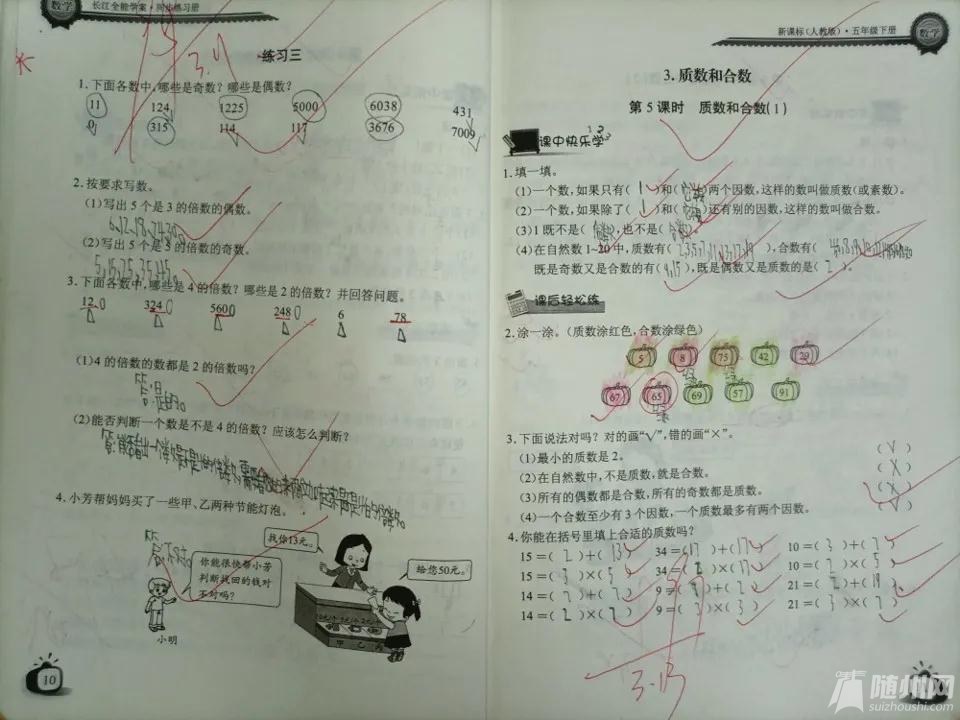 数学
长江全能学案·同步练习册
练习三
3.9
1.下面各数中,哪些是奇数?哪些是偶数?
11 124 1225 5000 6038 431
0 315 114 117 3676 7009
2.按要求写数。
(1)写出5个是3的倍数的偶数。
6,12,18,24,30。
(2)写出5个是5的倍数的奇数。
5,15,25,35,45。
3.下面各数中,哪些是4的倍数?哪些是2的倍数?并回答问题。
12 324 560 248 6 78
(1)4的倍数的数都是2的倍数吗?
答:是的。
(2)能否判断一个数是不是4的倍数?应该怎么判断?
4.小芳帮妈妈买了一些甲、乙两种节能灯泡。
找你13元。
给您50元。
你能很快帮小芳
判断找回的钱对
不对吗?
小明
甲 乙 丙
10
新课标(人教版)·五年级下册
数学
3.质数和合数
第5课时 质数和合数(1)
课中快乐学
1.填一填。
(1)一个数,如果只有(1)和()两个因数,这样的数叫做质数(或素数)。
(2)一个数,如果除了(1)和()还有别的因数,这样的数叫做合数。
(3)1既不是(),也不是()。
(4)在自然数1~20中,质数有(),合数有()
既是奇数又是合数的有(9,15),既是偶数又是质数的是(2)。
课后轻松练
2.涂一涂。(质数涂红色,合数涂绿色)
5 8 75 42 29
67 65 69 57 91
3.下面说法对吗?对的画“√”,错的画“×”。
(1)最小的质数是2。 (√)
(2)在自然数中,不是质数,就是合数。 (×)
(3)所有的偶数都是合数,所有的奇数都是质数。 (×)
(4)一个合数至少有3个因数,一个质数最多有两个因数。 (√)
4.你能在括号里填上合适的质数吗?
15=(2)+(13) 34=(17)+(17) 10=(3)+(7)
15=(3)×(5) 34=(2)×(17) 10=(5)×(2)
14=(7)+(7) 9=(7)+(2) 21=(2)+(19)
14=(2)×(7) 9=(3)×(3) 21=(3)×(7)
3.13
随州网
suizhoushi.com